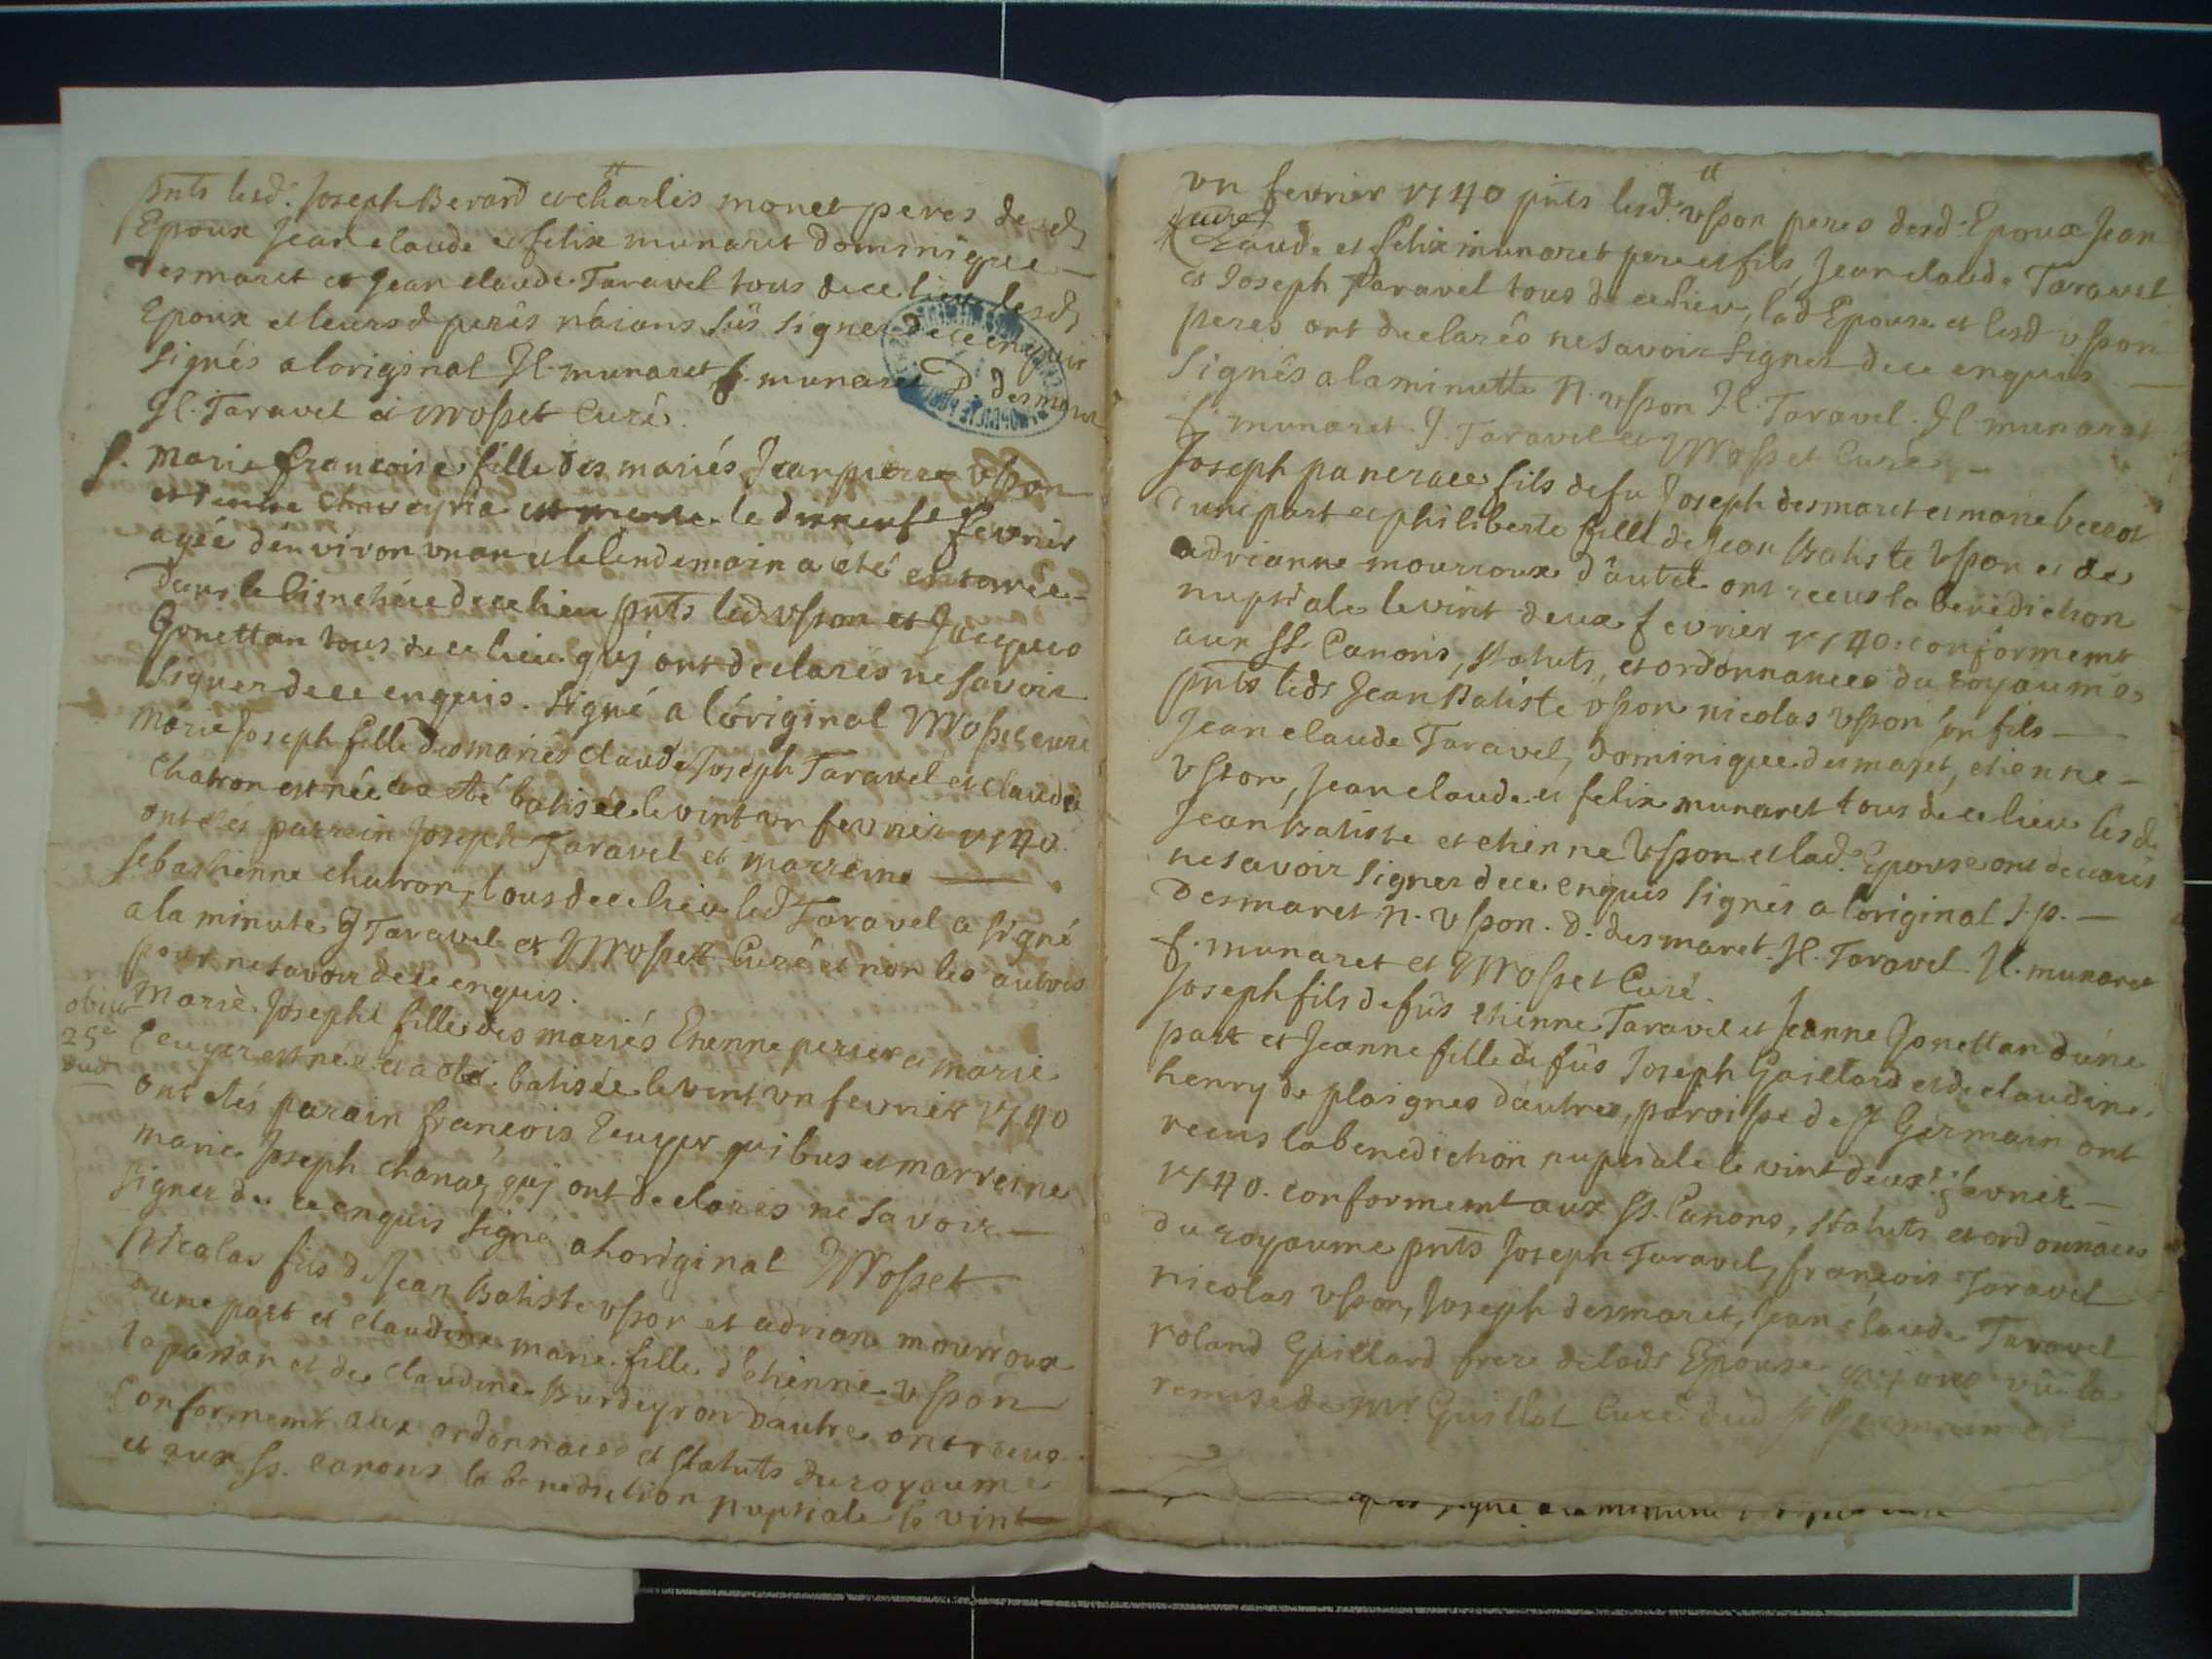 pnts lesd. Joseph Berard et charles monet peres desd
Epoux Jean claude et felix munaret dominique
desmaret et Jean claude Taravel tous de ce lieu lesd
Epoux et leursd peres n'aians sus signer de ce enquis
signés a loriginal JC. munaret f. munaret D. desmaret
JC. Taravel et Mosset Curé.
f. Marie francoise fille des mariés Jean pierre usson
et le dixneuf fevrier
agée d'environ un an et le lendemain a eté enterrée
dans le cimetiére de ce lieu pnts led usson et Jacques
Gonettan tous de ce lieu quj ont declarés ne savoir
signer de ce enquis. Signé a l'original Mosset curé
Marie Joseph fille des mariés claude Joseph Taravel et claudine
chatron est née et a été batisée le vint un fevrier 1740.
ont étés parrein Joseph Taravel et marreine
sebastienne chatron, tous de ce lieu led Taravel a signé
a la minute J Taravel et Mosset Curé et non les autres
pour ne savoir de ce enquis.
obiit
25e
dud
Marie Josephe fille des mariés Etienne perier et marie
est née et a été batisée le vint un fevrier 1740
ont étés parain françois quibus et marreine
marie Joseph chanaz quj ont declarés ne savoir
signer de ce enquis signé a loriginal Mosset
Nicolas fils de Jean Batiste usson et adriane mourroux
d'une part et claudine marie fille d'etienne usson
lapassan et de claudine Burdeyron d'autre ont recus
conformemt aux ordonnaces et statuts du royaume
et aux ss. canons la benediction nuptiale le vint
un fevrier 1740 pnts lesd. usson peres desd. Epoux Jean
claude et felix munaret pere et fils, Jean claude Taravel
et Joseph Taravel tous de ce lieu, lad Epouse et lesd usson
peres ont declarés ne savoir signer de ce enquis
signés a la minutte N. usson J.C. Taravel. JC. munaret
f. munaret. J. Taravel et Mosset Curé
Joseph pancrace fils de fu Joseph desmaret et marie
d'une part et philiberte fille de Jean Batiste Usson et de
adrianne mourroux d'autre ont recus la benediction
nuptiale le vint deux fevrier 1740. conformemt
aux SS. Canons, statuts, et ordonnances du royaume
pnts leds Jean Batiste usson nicolas Usson son fils
Jean claude Taravel, Dominique desmaret, etienne
Usson, Jean claude et felix munaret tous de ce lieu lesd
Jean Batiste et etienne Usson et lad. Epouse ont declarés
ne savoir signer de ce enquis signés a loriginal J.p.
Desmaret. N. Usson. D. desmaret. JC. Taravel. JC. munaret
f. munaret et Mosset Curé.
Joseph fils de fûs etienne Taravel et Jeanne Jonettan d'une
part et Jeanne fille de fûs Joseph Gaillard et de claudine
henry de plaignes d'autres, paroisse de St Germain ont
recus la benediction nuptiale le vint deux fevrier
1740. conformemt aux SS. Canons, statuts et ordonnaces
du royaume pnts Joseph Taravel, françois Taravel
nicolas Usson, Joseph desmaret, Jean claude Taravel
roland Gaillard frere de lads Epouse quj ont vû la
remise de Mr. Guillot Curé dud St Germain
signé a la minute